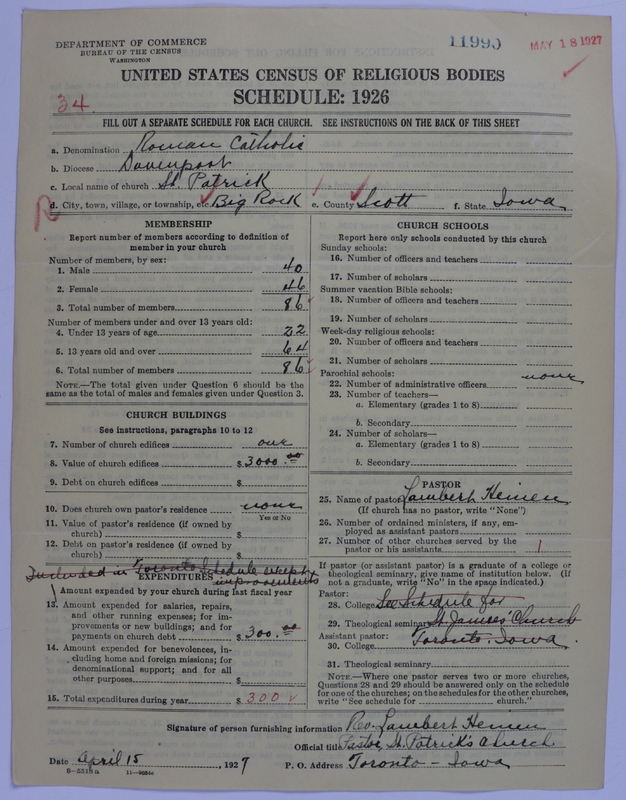 DEPARTMENT OF COMMERCE
BUREAU OF THE CENSUS
WASHINGTON
11995
MAY 18 1927
UNITED STATES CENSUS OF RELIGIOUS BODIES
SCHEDULE: 1926
34
FILL OUT A SEPARATE SCHEDULE FOR EACH CHURCH. SEE INSTRUCTIONS ON THE BACK OF THIS SHEET
a. Denomination Roman Catholic
b. Diocese Davenport
c. Local name of church St. Patrick
d. City, town, village, or township, etc. Big Rock e. County Scott f. State Iowa
MEMBERSHIP
Report number of members according to definition of member in your church
Number of members, by sex:
1. Male 40
2. Female 46
3. Total number of members 86
Number of members under and over 13 years old:
4. Under 13 years of age 22
5. 13 years old and over 64
6. Total number of members 86
NOTE.—The total given under Question 6 should be the same as the total of males and females given under Question 3.
CHURCH BUILDINGS
See instructions, paragraphs 10 to 12
7. Number of church edifices one
8. Value of church edifices $3000.00
9. Debt on church edifices $
10. Does church own pastor's residence none
Yes or No
11. Value of pastor's residence (if owned by church) $
12. Debt on pastor's residence (if owned by church) $
Included in Toronto Schedule except
improvements
EXPENDITURES
Amount expended by your church during last fiscal year
13. Amount expended for salaries, repairs, and other running expenses; for improvements or new buildings; and for payments on church debt $300.00
14. Amount expended for benevolences, including home and foreign missions; for denominational support; and for all other purposes $
15. Total expenditures during year $300
CHURCH SCHOOLS
Report here only schools conducted by this church
Sunday schools:
16. Number of officers and teachers
17. Number of scholars
Summer vacation Bible schools:
18. Number of officers and teachers
19. Number of scholars
Week-day religious schools:
20. Number of officers and teachers
21. Number of scholars
Parochial schools:
22. Number of administrative officers none
23. Number of teachers—
a. Elementary (grades 1 to 8)
b. Secondary
24. Number of scholars—
a. Elementary (grades 1 to 8)
b. Secondary
PASTOR
25. Name of pastor Lambert Heinen
(If church has no pastor, write "None")
26. Number of ordained ministers, if any, employed as assistant pastors
27. Number of other churches served by the pastor or his assistants 1
If pastor (or assistant pastor) is a graduate of a college or theological seminary, give name of institution below. (If not a graduate, write "No" in the space indicated.)
Pastor:
28. College See Schedule for
29. Theological seminary St. James' Church
Assistant pastor: Toronto. Iowa.
30. College
31. Theological seminary
NOTE.—Where one pastor serves two or more churches, Questions 28 and 29 should be answered only on the schedule for one of the churches; on the schedules for the other churches, write "See schedule for church."
Signature of person furnishing information Rev. Lambert Heinen
Official title Pastor, St. Patrick's Church
Date April 15, 1927 P. O. Address Toronto - Iowa
6-5518a 11-9054